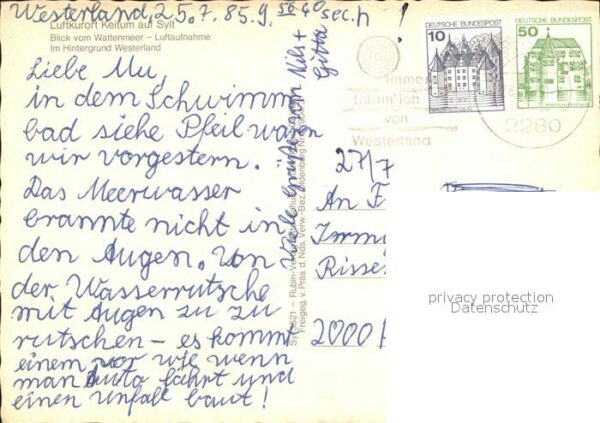 Westerland, 25.7.85. 9 50 40 sec. h
Luftkurort Keitum auf Sylt
Blick vom Wattenmeer – Luftaufnahme
Im Hintergrund Westerland
Liebe Mu,
in dem Schwimm
bad siehe Pfeil waren
wir vorgestern.
Das Meerwasser
brannte nicht in
den Augen. Von
der Wasserrutsche
mit Augen zu zu
rutschen – es kommt
einem vor wie wenn
man Auto fährt und
einen Unfall baut!
Viele Grüße von Nils +
Gitta
Freigeg. v. Präs. d. Nds. Verw.-Bez.
DEUTSCHE BUNDESPOST
10
DEUTSCHE BUNDESPOST
50
immer
träum' ich
von
Westerland
2280
27/7
An F
Immi
Risse
2000 H
privacy protection
Datenschutz